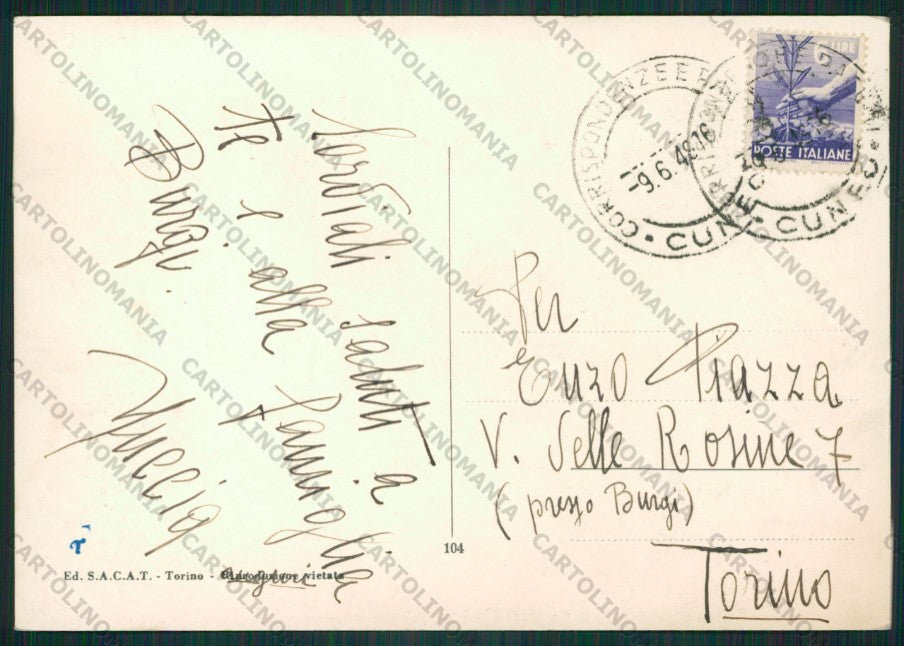 Cordiali saluti a
te e alla famiglia
Burgi.
Nuccia
auguri
LIRE
POSTE ITALIANE
CORRISPONDENZE E
-9.6.48.16
CUNEO
CUNEO
Per
Enzo Piazza
V. delle Rosine 7
(presso Burgi)
Torino
104
Ed. S.A.C.A.T. - Torino - Riproduzione vietata
CARTOLINOMANIA